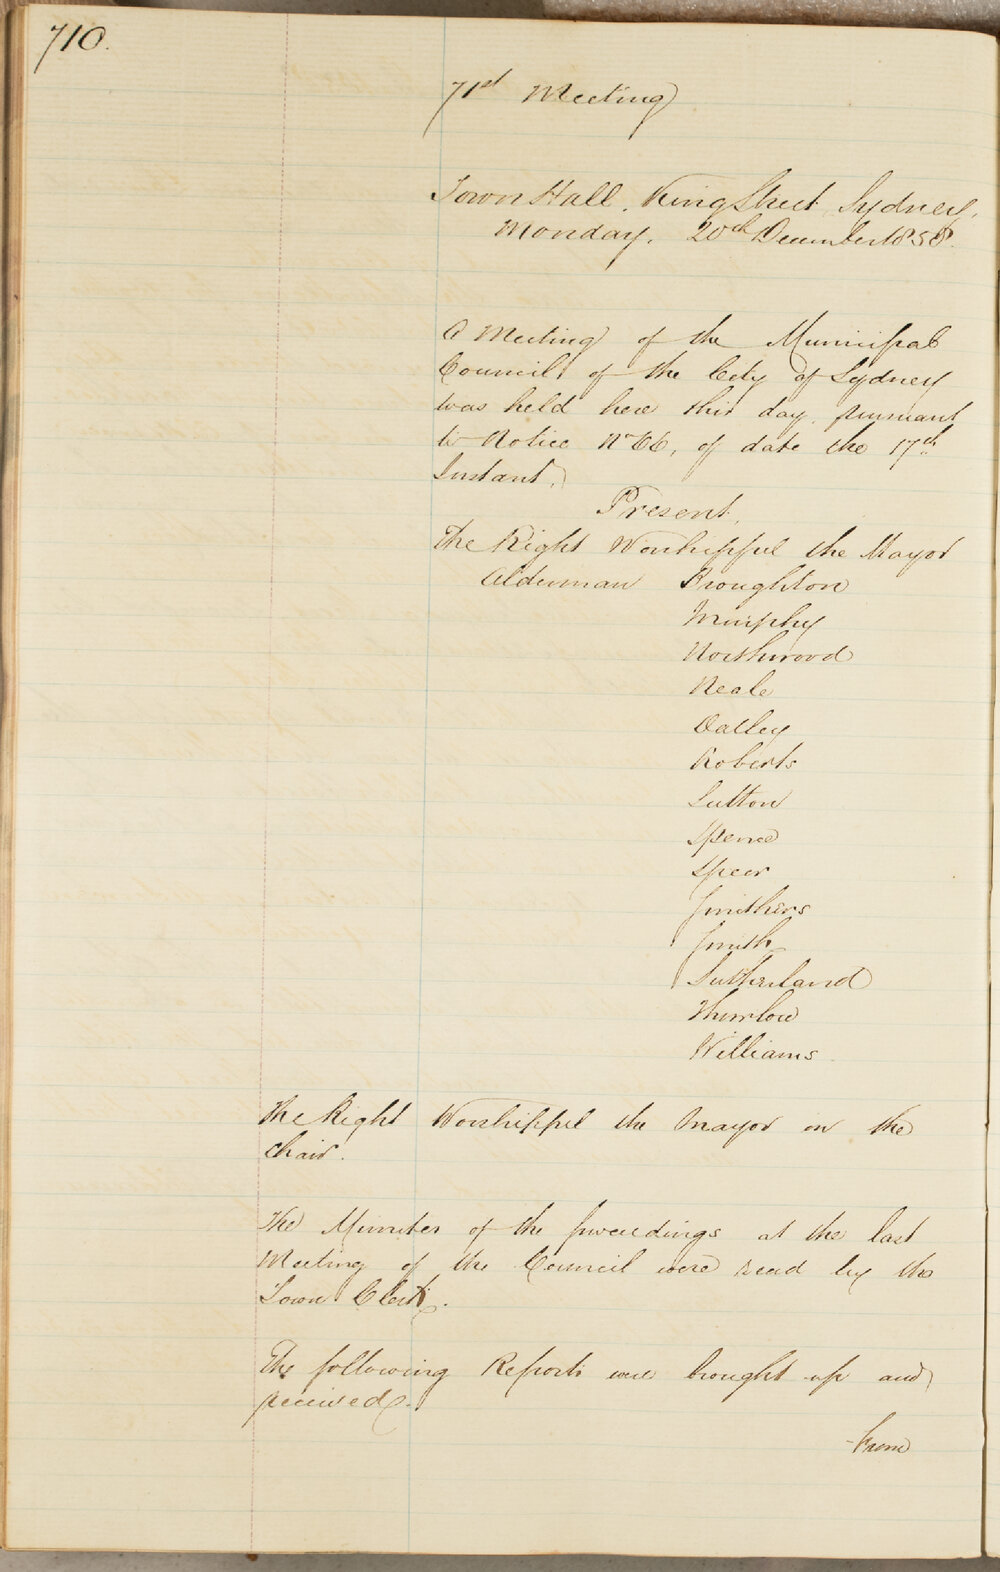 710.
71st Meeting
Town Hall, King Street Sydney,
Monday, 20th December 1858.
A Meeting of the Municipal
Council of the City of Sydney
was held here this day, pursuant
to Notice No 66, of date the 17th
Instant.
Present,
The Right Worshipful the Mayor
Alderman Broughton
Murphy
Northwood
Neale
Oatley
Roberts
Sutton
Spence
Speer
Smithers
Smith
Sutherland
Thurlow
Williams
The Right Worshipful the Mayor in the
Chair.
The Minutes of the proceedings at the last
Meeting of the Council were read by the
Town Clerk.
The following Reports were brought up and
received.
From